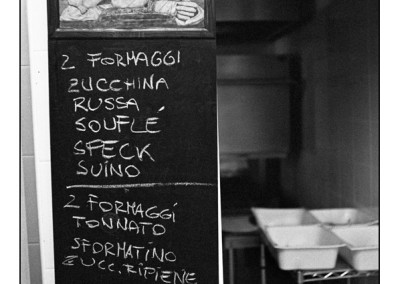 2 FORMAGGI
ZUCCHINA
RUSSA
SOUFLÉ
SPECK
SUINO
2 FORMAGGI
TONNATO
SFORMATINO
ZUCC. RIPIENE